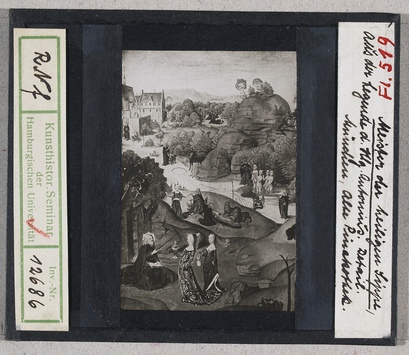 R N f
Kunsthistor. Seminar
der
Hamburgischen Universität
Inv.-Nr.
12686
Fi. 519
Meister der heiligen Sippe,
aus der Legende d. Hlg. Antonius. Detail.
München, Alte Pinakothek.